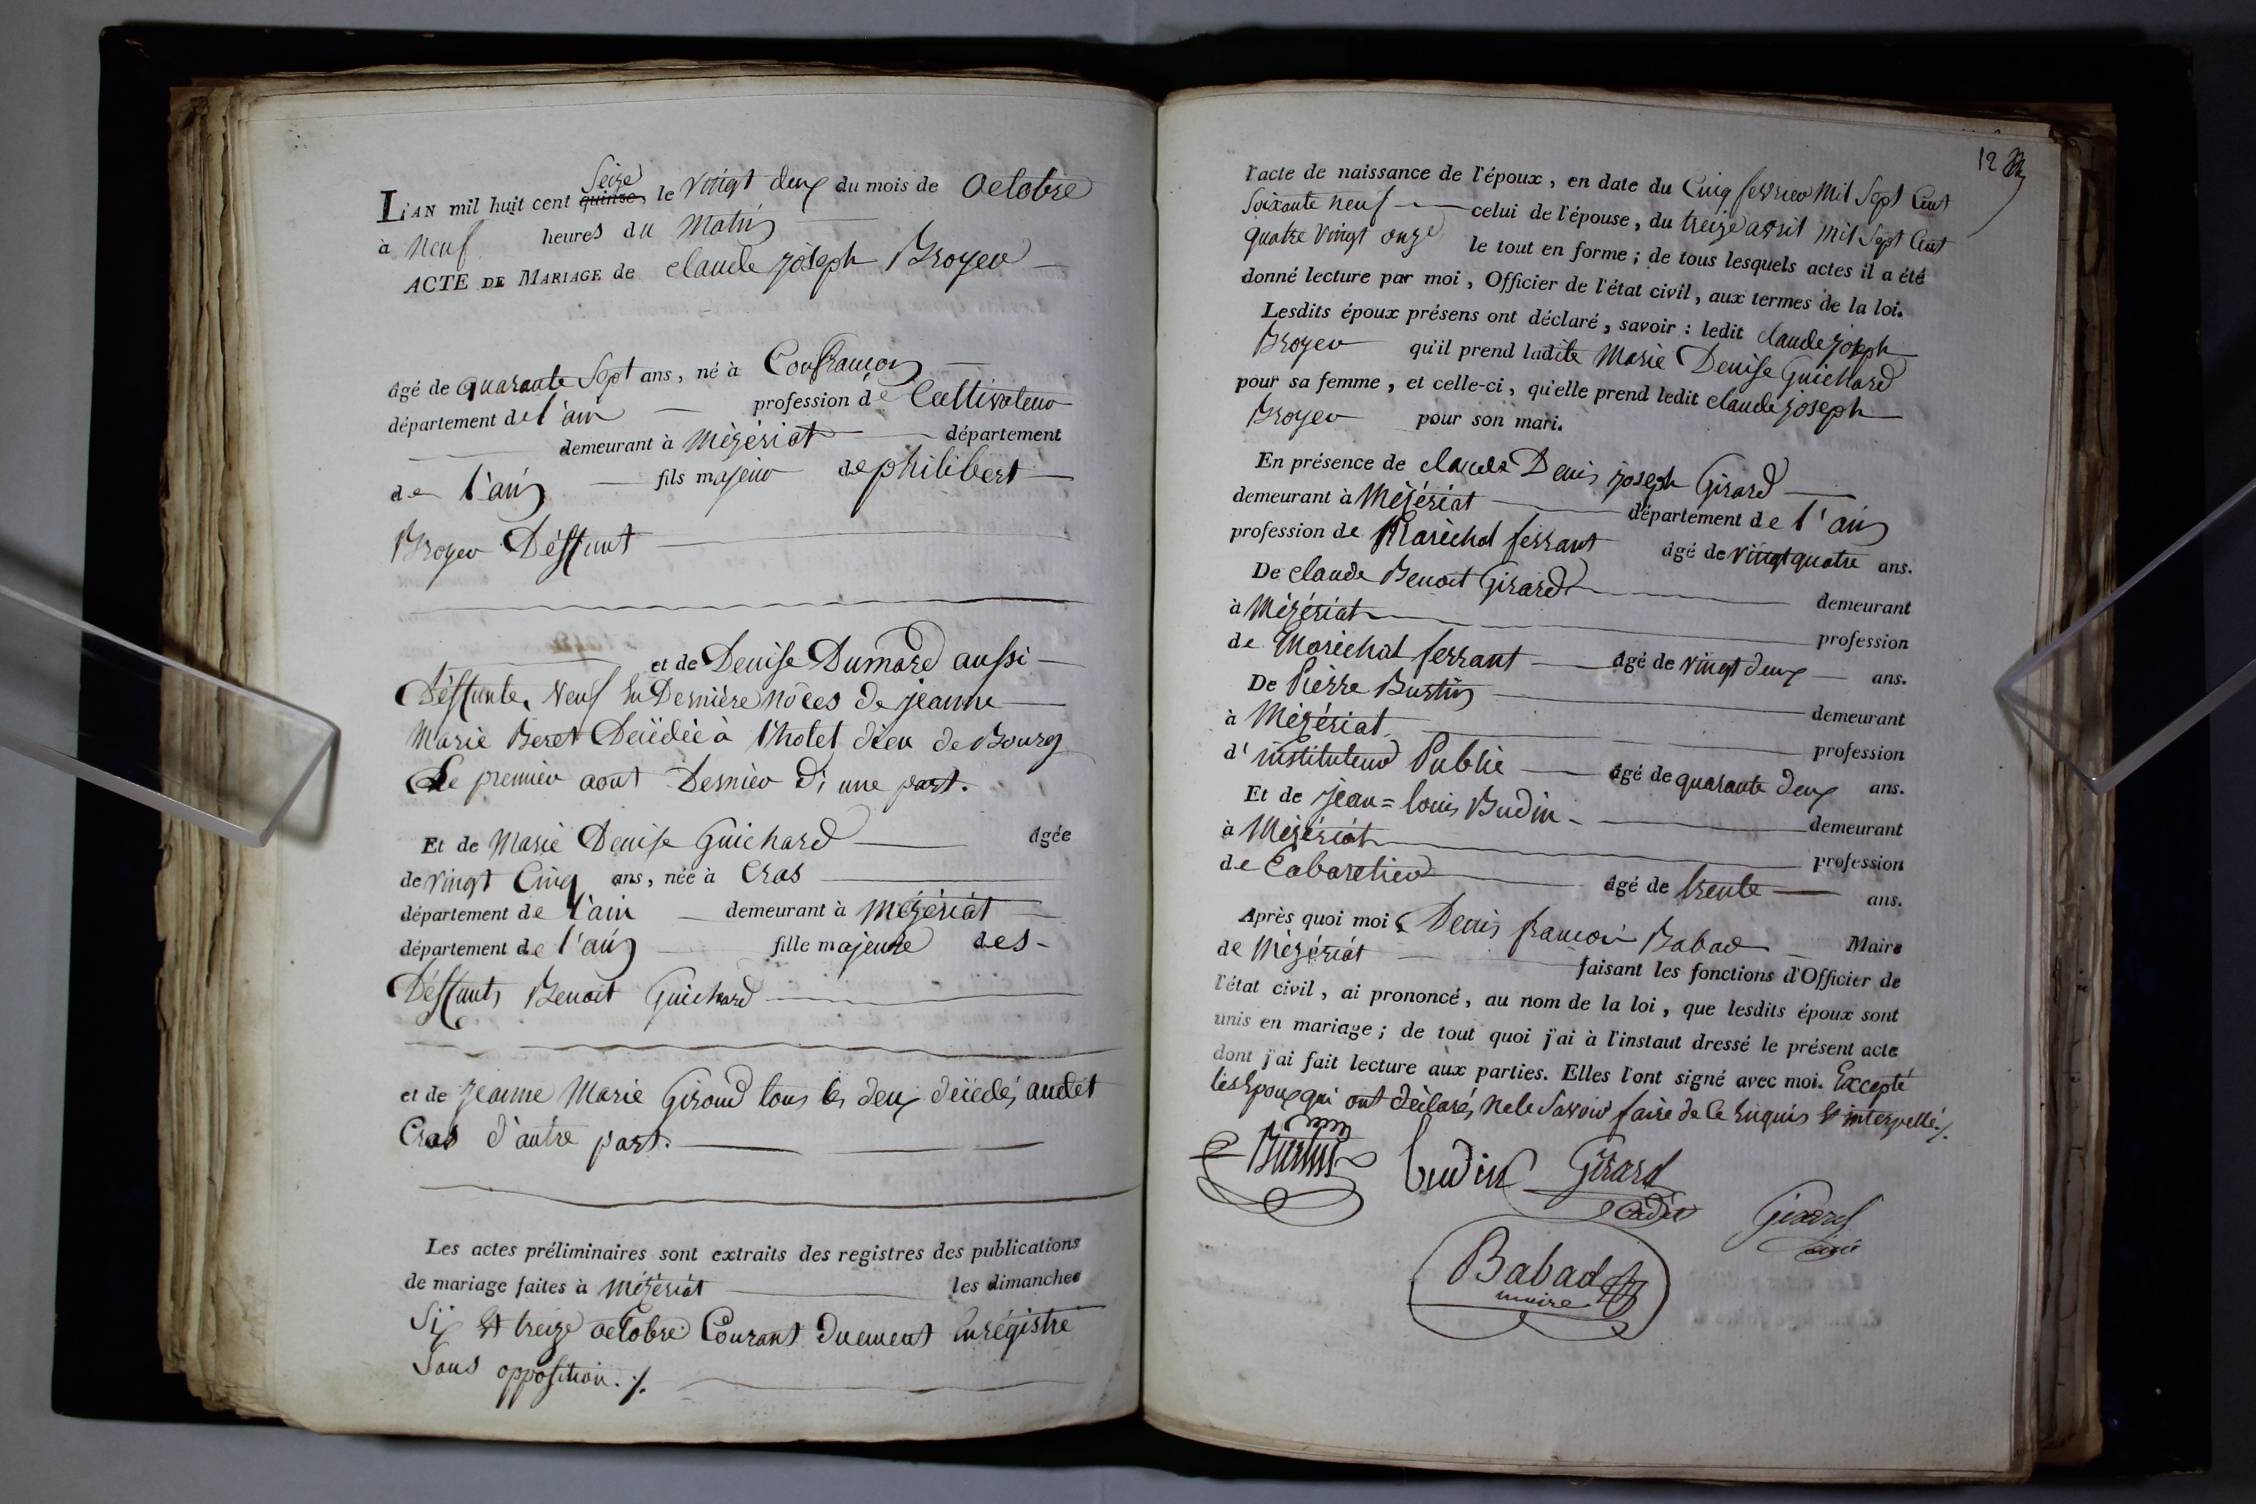 L'AN mil huit cent quinze, Seize le vingt deux du mois de octobre
à Neuf heures du Matin
ACTE DE MARIAGE de claude joseph Broyer
âgé de quarante Sept ans, né à Confrançon
département de l'ain profession de Cultivateur
demeurant à Mézériat département
de l'ain fils majeur de philibert
Broyer Déffunt
et de Denise Dumard aussi
Déffunte, Veuf En Dernière nôces de jeanne
Marie Beret Décédée à l'hotel dieu de Bourg
Le premier aout Dernier D'une part.
Et de Marie Denise Guichard âgée
de vingt Cinq ans, née à Cras
département de l'ain demeurant à Mézériat
département de l'ain fille majeure des
Déffunts Benoit Guichard
et de jeanne Marie Giroud tous les deux décédés audit
Cras d'autre part.
Les actes préliminaires sont extraits des registres des publications
de mariage faites à Mézériat les dimanches
Six Et treize octobre Courant duement Enrégistré
Sans opposition. /.
12
l'acte de naissance de l'époux, en date du Cinq fevrier Mil Sept Cent
Soixante neuf celui de l'épouse, du treize avril Mil Sept Cent
quatre vingt onze le tout en forme ; de tous lesquels actes il a été
donné lecture par moi, Officier de l'état civil, aux termes de la loi.
Lesdits époux présens ont déclaré, savoir : ledit claude joseph
Broyer qu'il prend ladite Marie Denise Guichard
pour sa femme, et celle-ci, qu'elle prend ledit claude joseph
Broyer pour son mari.
En présence de claude Denis joseph Girard
demeurant à Mézériat département de l'ain
profession de Maréchal ferrant âgé de vingt quatre ans.
De claude Benoit Girard demeurant
à Mézériat profession
de Maréchal ferrant âgé de vingt deux ans.
De Pierre Burtin demeurant
à Mézériat profession
d'instituteur Public âgé de quarante deux ans.
Et de jean=louis Budin demeurant
à Mézériat profession
de Cabaretier âgé de trente ans.
Après quoi moi, Denis françois Babad Maire
de Mézériat faisant les fonctions d'Officier de
l'état civil, ai prononcé, au nom de la loi, que lesdits époux sont
unis en mariage ; de tout quoi j'ai à l'instaut dressé le présent acte
dont j'ai fait lecture aux parties. Elles l'ont signé avec moi. Excepté
les Epoux qui ont déclarés ne le Savoir faire de ce Enquis Et interpellé /.
Burtin budin Girard
cadet Girard
ainé
Babad
maire